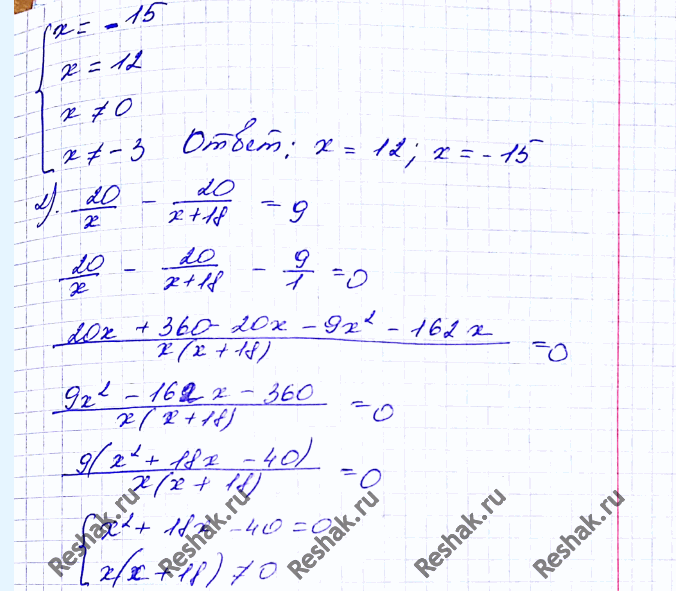 x = -15
x = 12
x ≠ 0
x ≠ -3 Ответ: x = 12; x = -15
2). 20/x - 20/(x+18) = 9
20/x - 20/(x+18) - 9/1 = 0
(20x + 360 - 20x - 9x² - 162x)/(x(x+18)) = 0
(9x² - 162x - 360)/(x(x+18)) = 0
9(x² + 18x - 40)/(x(x+18)) = 0
x² + 18x - 40 = 0
x(x+18) ≠ 0
Reshak.ru Reshak.ru Reshak.ru Reshak.ru Reshak.ru